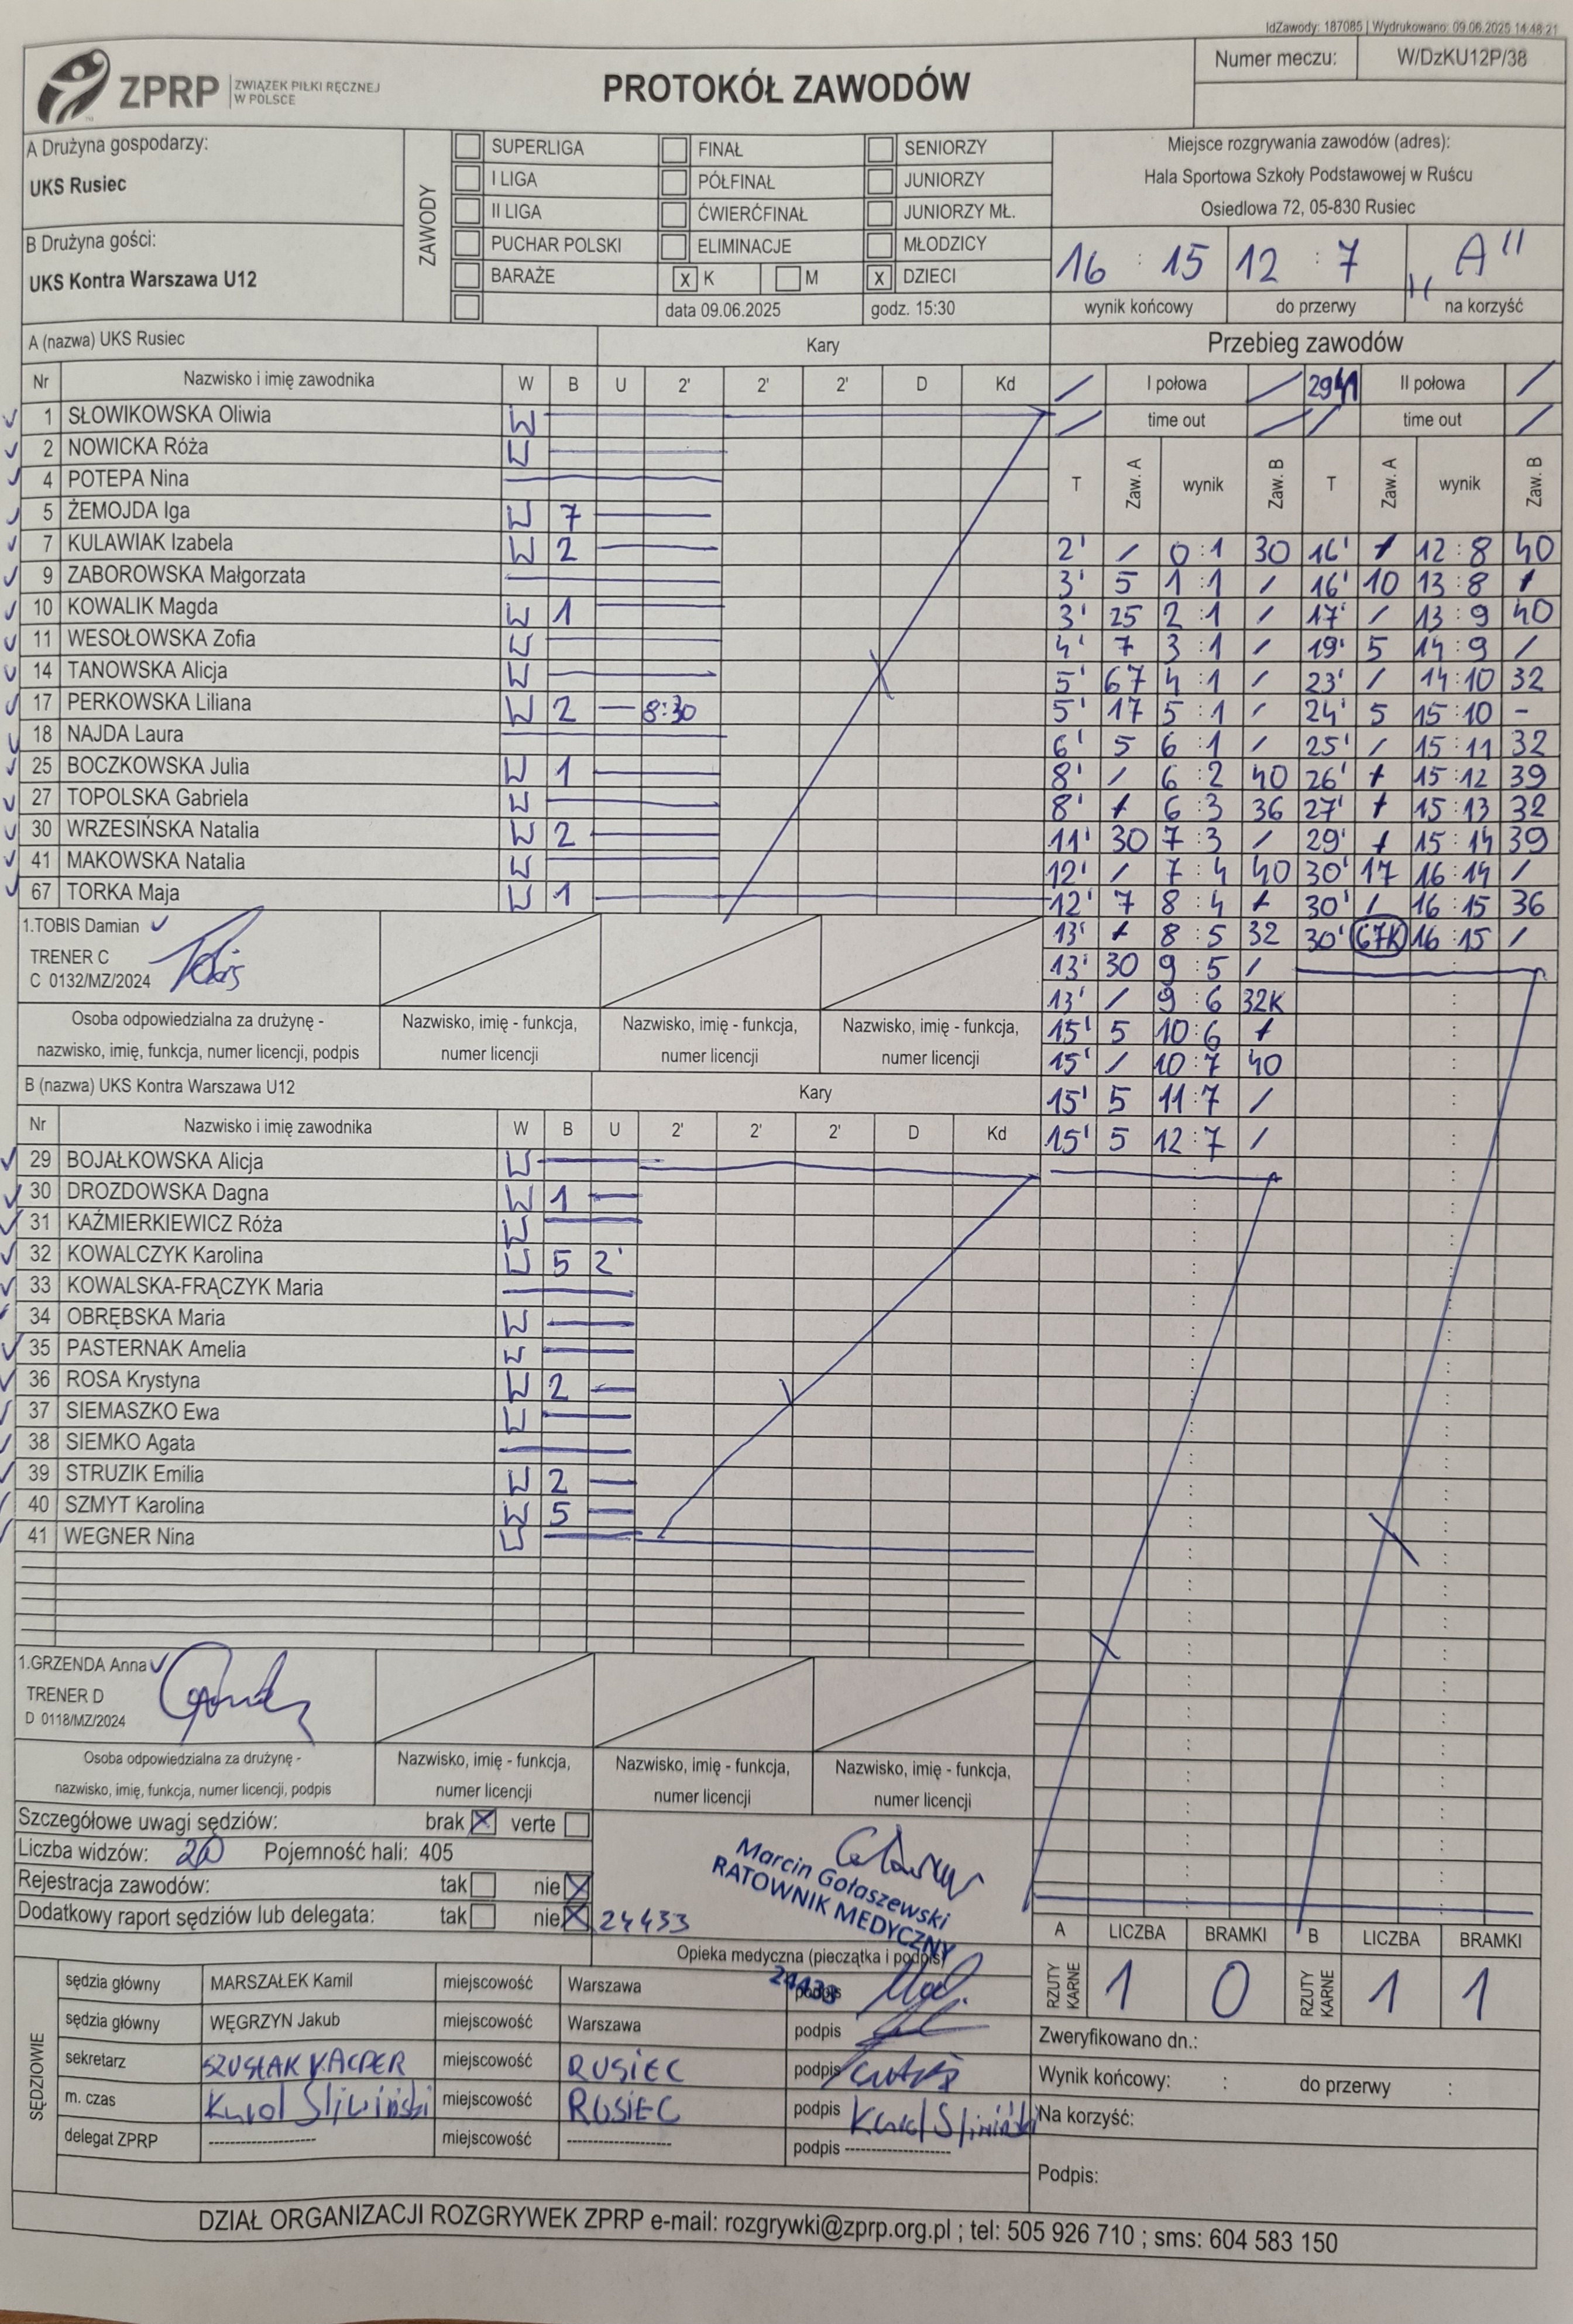 IdZawody: 187085 | Wydrukowano: 09.06.2025 14:48:21
ZPRP ZWIĄZEK PIŁKI RĘCZNEJ
W POLSCE
PROTOKÓŁ ZAWODÓW
Numer meczu: W/DzKU12P/38
A Drużyna gospodarzy:
UKS Rusiec
B Drużyna gości:
UKS Kontra Warszawa U12
ZAWODY
SUPERLIGA FINAŁ SENIORZY
I LIGA PÓŁFINAŁ JUNIORZY
II LIGA ĆWIERĆFINAŁ JUNIORZY MŁ.
PUCHAR POLSKI ELIMINACJE MŁODZICY
BARAŻE X K M X DZIECI
data 09.06.2025 godz. 15:30
Miejsce rozgrywania zawodów (adres):
Hala Sportowa Szkoły Podstawowej w Ruścu
Osiedlowa 72, 05-830 Rusiec
16 : 15 12 : 7 „A"
wynik końcowy do przerwy na korzyść
A (nazwa) UKS Rusiec Kary
Nr Nazwisko i imię zawodnika W B U 2' 2' 2' D Kd
1 SŁOWIKOWSKA Oliwia W
2 NOWICKA Róża W
4 POTEPA Nina
5 ŻEMOJDA Iga W 7
7 KULAWIAK Izabela W 2
9 ZABOROWSKA Małgorzata
10 KOWALIK Magda W 1
11 WESOŁOWSKA Zofia W
14 TANOWSKA Alicja W
17 PERKOWSKA Liliana W 2 — 8:30
18 NAJDA Laura
25 BOCZKOWSKA Julia W 1
27 TOPOLSKA Gabriela W
30 WRZESIŃSKA Natalia W 2
41 MAKOWSKA Natalia W
67 TORKA Maja W 1
1.TOBIS Damian
TRENER C
C 0132/MZ/2024
Tobis
Osoba odpowiedzialna za drużynę -
nazwisko, imię, funkcja, numer licencji, podpis
Nazwisko, imię - funkcja,
numer licencji
Nazwisko, imię - funkcja,
numer licencji
Nazwisko, imię - funkcja,
numer licencji
B (nazwa) UKS Kontra Warszawa U12 Kary
Nr Nazwisko i imię zawodnika W B U 2' 2' 2' D Kd
29 BOJAŁKOWSKA Alicja W
30 DROZDOWSKA Dagna W 1
31 KAŹMIERKIEWICZ Róża W
32 KOWALCZYK Karolina W 5 2'
33 KOWALSKA-FRĄCZYK Maria
34 OBRĘBSKA Maria W
35 PASTERNAK Amelia W
36 ROSA Krystyna W 2
37 SIEMASZKO Ewa W
38 SIEMKO Agata
39 STRUZIK Emilia W 2
40 SZMYT Karolina W 5
41 WEGNER Nina W
1.GRZENDA Anna
TRENER D
D 0118/MZ/2024
Osoba odpowiedzialna za drużynę -
nazwisko, imię, funkcja, numer licencji, podpis
Nazwisko, imię - funkcja,
numer licencji
Nazwisko, imię - funkcja,
numer licencji
Nazwisko, imię - funkcja,
numer licencji
Przebieg zawodów
/ I połowa / II połowa /
/ time out / / time out /
T Zaw. A wynik Zaw. B T Zaw. A wynik Zaw. B
2' / 0:1 30 16' / 12:8 40
3' 5 1:1 / 16' 10 13:8 /
3' 25 2:1 / 17' / 13:9 40
4' 7 3:1 / 19' 5 14:9 /
5' 67 4:1 / 23' / 14:10 32
5' 17 5:1 / 24' 5 15:10 -
6' 5 6:1 / 25' / 15:11 32
8' / 6:2 40 26' / 15:12 39
8' / 6:3 36 27' / 15:13 32
11' 30 7:3 / 29' / 15:14 39
12' / 7:4 40 30' 17 16:14 /
12' 7 8:4 / 30' / 16:15 36
13' / 8:5 32 30' 67K 16:15 /
13' 30 9:5 /
13' / 9:6 32K
15' 5 10:6 /
15' / 10:7 40
15' 5 11:7 /
15' 5 12:7 /
Szczegółowe uwagi sędziów: brak X verte
Liczba widzów: 20 Pojemność hali: 405
Rejestracja zawodów: tak nie X
Dodatkowy raport sędziów lub delegata: tak nie X
24433
Marcin Gołaszewski
RATOWNIK MEDYCZNY
24433
Opieka medyczna (pieczątka i podpis)
A LICZBA BRAMKI B LICZBA BRAMKI
RZUTY KARNE 1 0 RZUTY KARNE 1 1
SĘDZIOWIE
sędzia główny MARSZAŁEK Kamil miejscowość Warszawa podpis
sędzia główny WĘGRZYN Jakub miejscowość Warszawa podpis
sekretarz SZUSTAK KACPER miejscowość RUSIEC podpis
m. czas Karol Śliwiński miejscowość RUSIEC podpis Karol Śliwiński
delegat ZPRP ---------- miejscowość ---------- podpis ----------
Zweryfikowano dn.:
Wynik końcowy: : do przerwy :
Na korzyść:
Podpis:
DZIAŁ ORGANIZACJI ROZGRYWEK ZPRP e-mail: rozgrywki@zprp.org.pl ; tel: 505 926 710 ; sms: 604 583 150